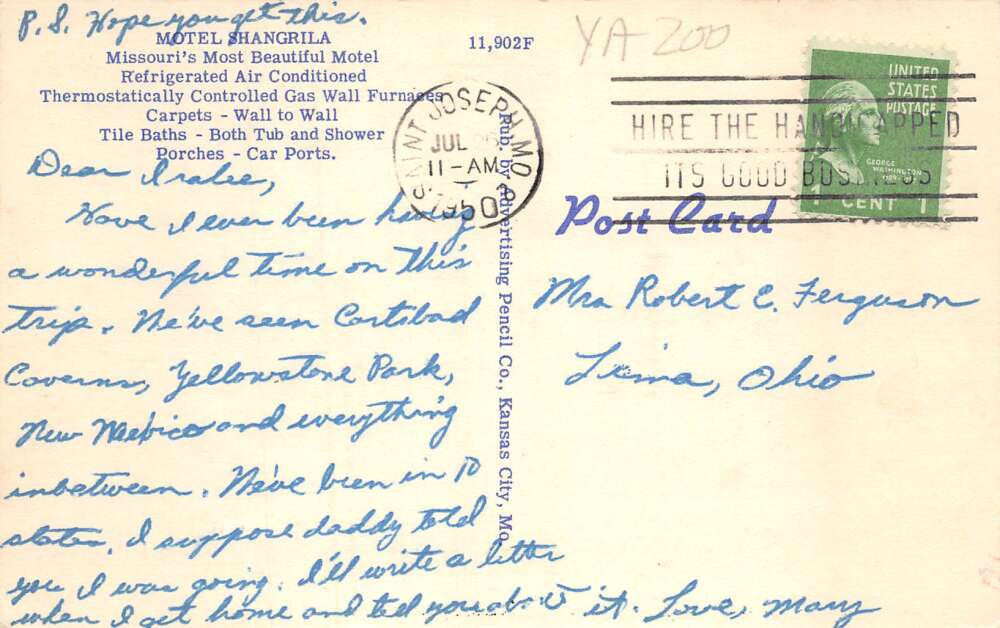 P.S. Hope you get this.
MOTEL SHANGRILA
Missouri's Most Beautiful Motel
Refrigerated Air Conditioned
Thermostatically Controlled Gas Wall Furnaces
Carpets - Wall to Wall
Tile Baths - Both Tub and Shower
Porches - Car Ports.
11,902F
YA 200
SAINT JOSEPH, MO.
JUL
11-AM
1950
HIRE THE HANDICAPPED
ITS GOOD BUSINESS
UNITED
STATES
POSTAGE
GEORGE
WASHINGTON
1789-
1 CENT 1
Dear Iralee,
Have I ever been having
a wonderful time on this
trip. We've seen Carlsbad
Caverns, Yellowstone Park,
New Mexico and everything
inbetween. We've been in 10
states. I suppose daddy told
you I was going. I'll write a letter
when I get home and tell you about it. Love, Mary
Pub. by Advertising Pencil Co., Kansas City, Mo.
Post Card
Mrs Robert C. Ferguson
Lima, Ohio